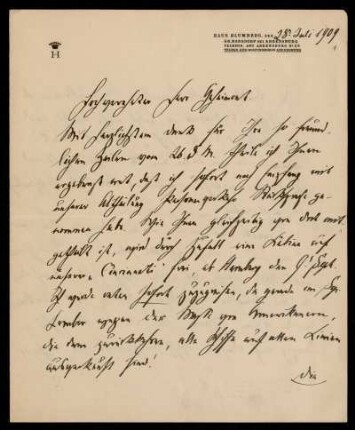 H
HAUS BLUMBERG, DEN 28. Juli 1909
Hochgeehrter Herr Geheimrat
Mit herzlichstem Dank für Ihre so freund-
lichen Zeilen vom 26. d. M. theile ich Ihnen
ergebenst mit, daß ich sofort nach Empfang mit
unserer Abtheilung Rücksprache ge-
nommen habe. Wie Ihnen gleichzeitig von dort mit-
getheilt ist, wird durch Zufall eine Kabine auf
unserer "Cincinnati" frei, ab Hamburg den 9. Sept.
Ich würde raten sofort zuzugreifen, da gerade im Sep-
tember wegen der von Amerikanern,
die dann zurückkehren, alle Schiffe auf allen Linien
ausverkauft sind!
Die